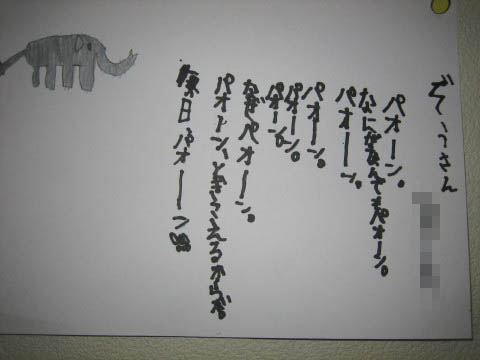 ぞうさん
パオーン。
なにがあんでもパオーン。
パオーン。
パオーン。
パオーン。
パオーン。
なぜパオーン。
パオーン、ときこえるからだ。
毎日パオーン